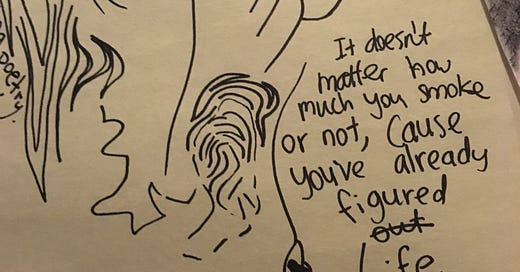 poetry
It doesn't
matter how
much you smoke
or not, Cause
you've already
figured
out
Life